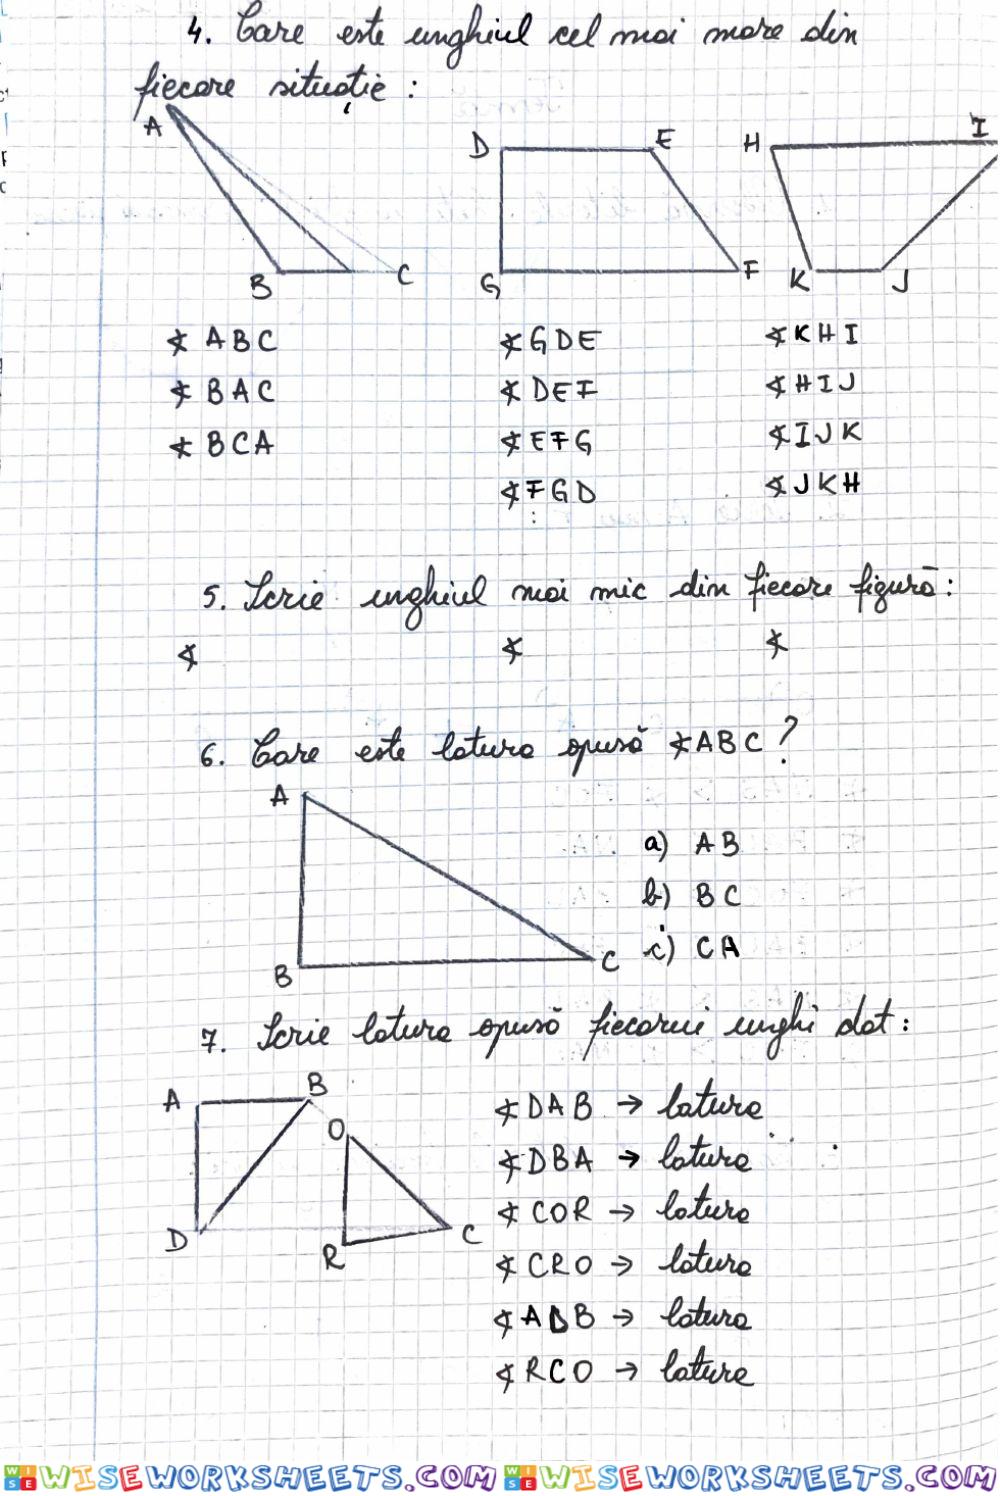 4. Care este unghiul cel mai mare din
fiecare situație :
A
B
C
D
E
F
G
H
I
J
K
∢ ABC
∢ BAC
∢ BCA
∢ GDE
∢ DEF
∢ EFG
∢ FGD
∢ KHI
∢ HIJ
∢ IJK
∢ JKH
5. Scrie unghiul mai mic din fiecare figură:
∢ ∢ ∢
6. Care este latura opusă ∢ABC?
A
B
C
a) AB
b) BC
c) CA
7. Scrie latura opusă fiecarui unghi dat:
A
B
O
D
R
C
∢ DAB → latura
∢ DBA → latura
∢ COR → latura
∢ CRO → latura
∢ ADB → latura
∢ RCO → latura
WISEWORKSHEETS.COM WISEWORKSHEETS.COM